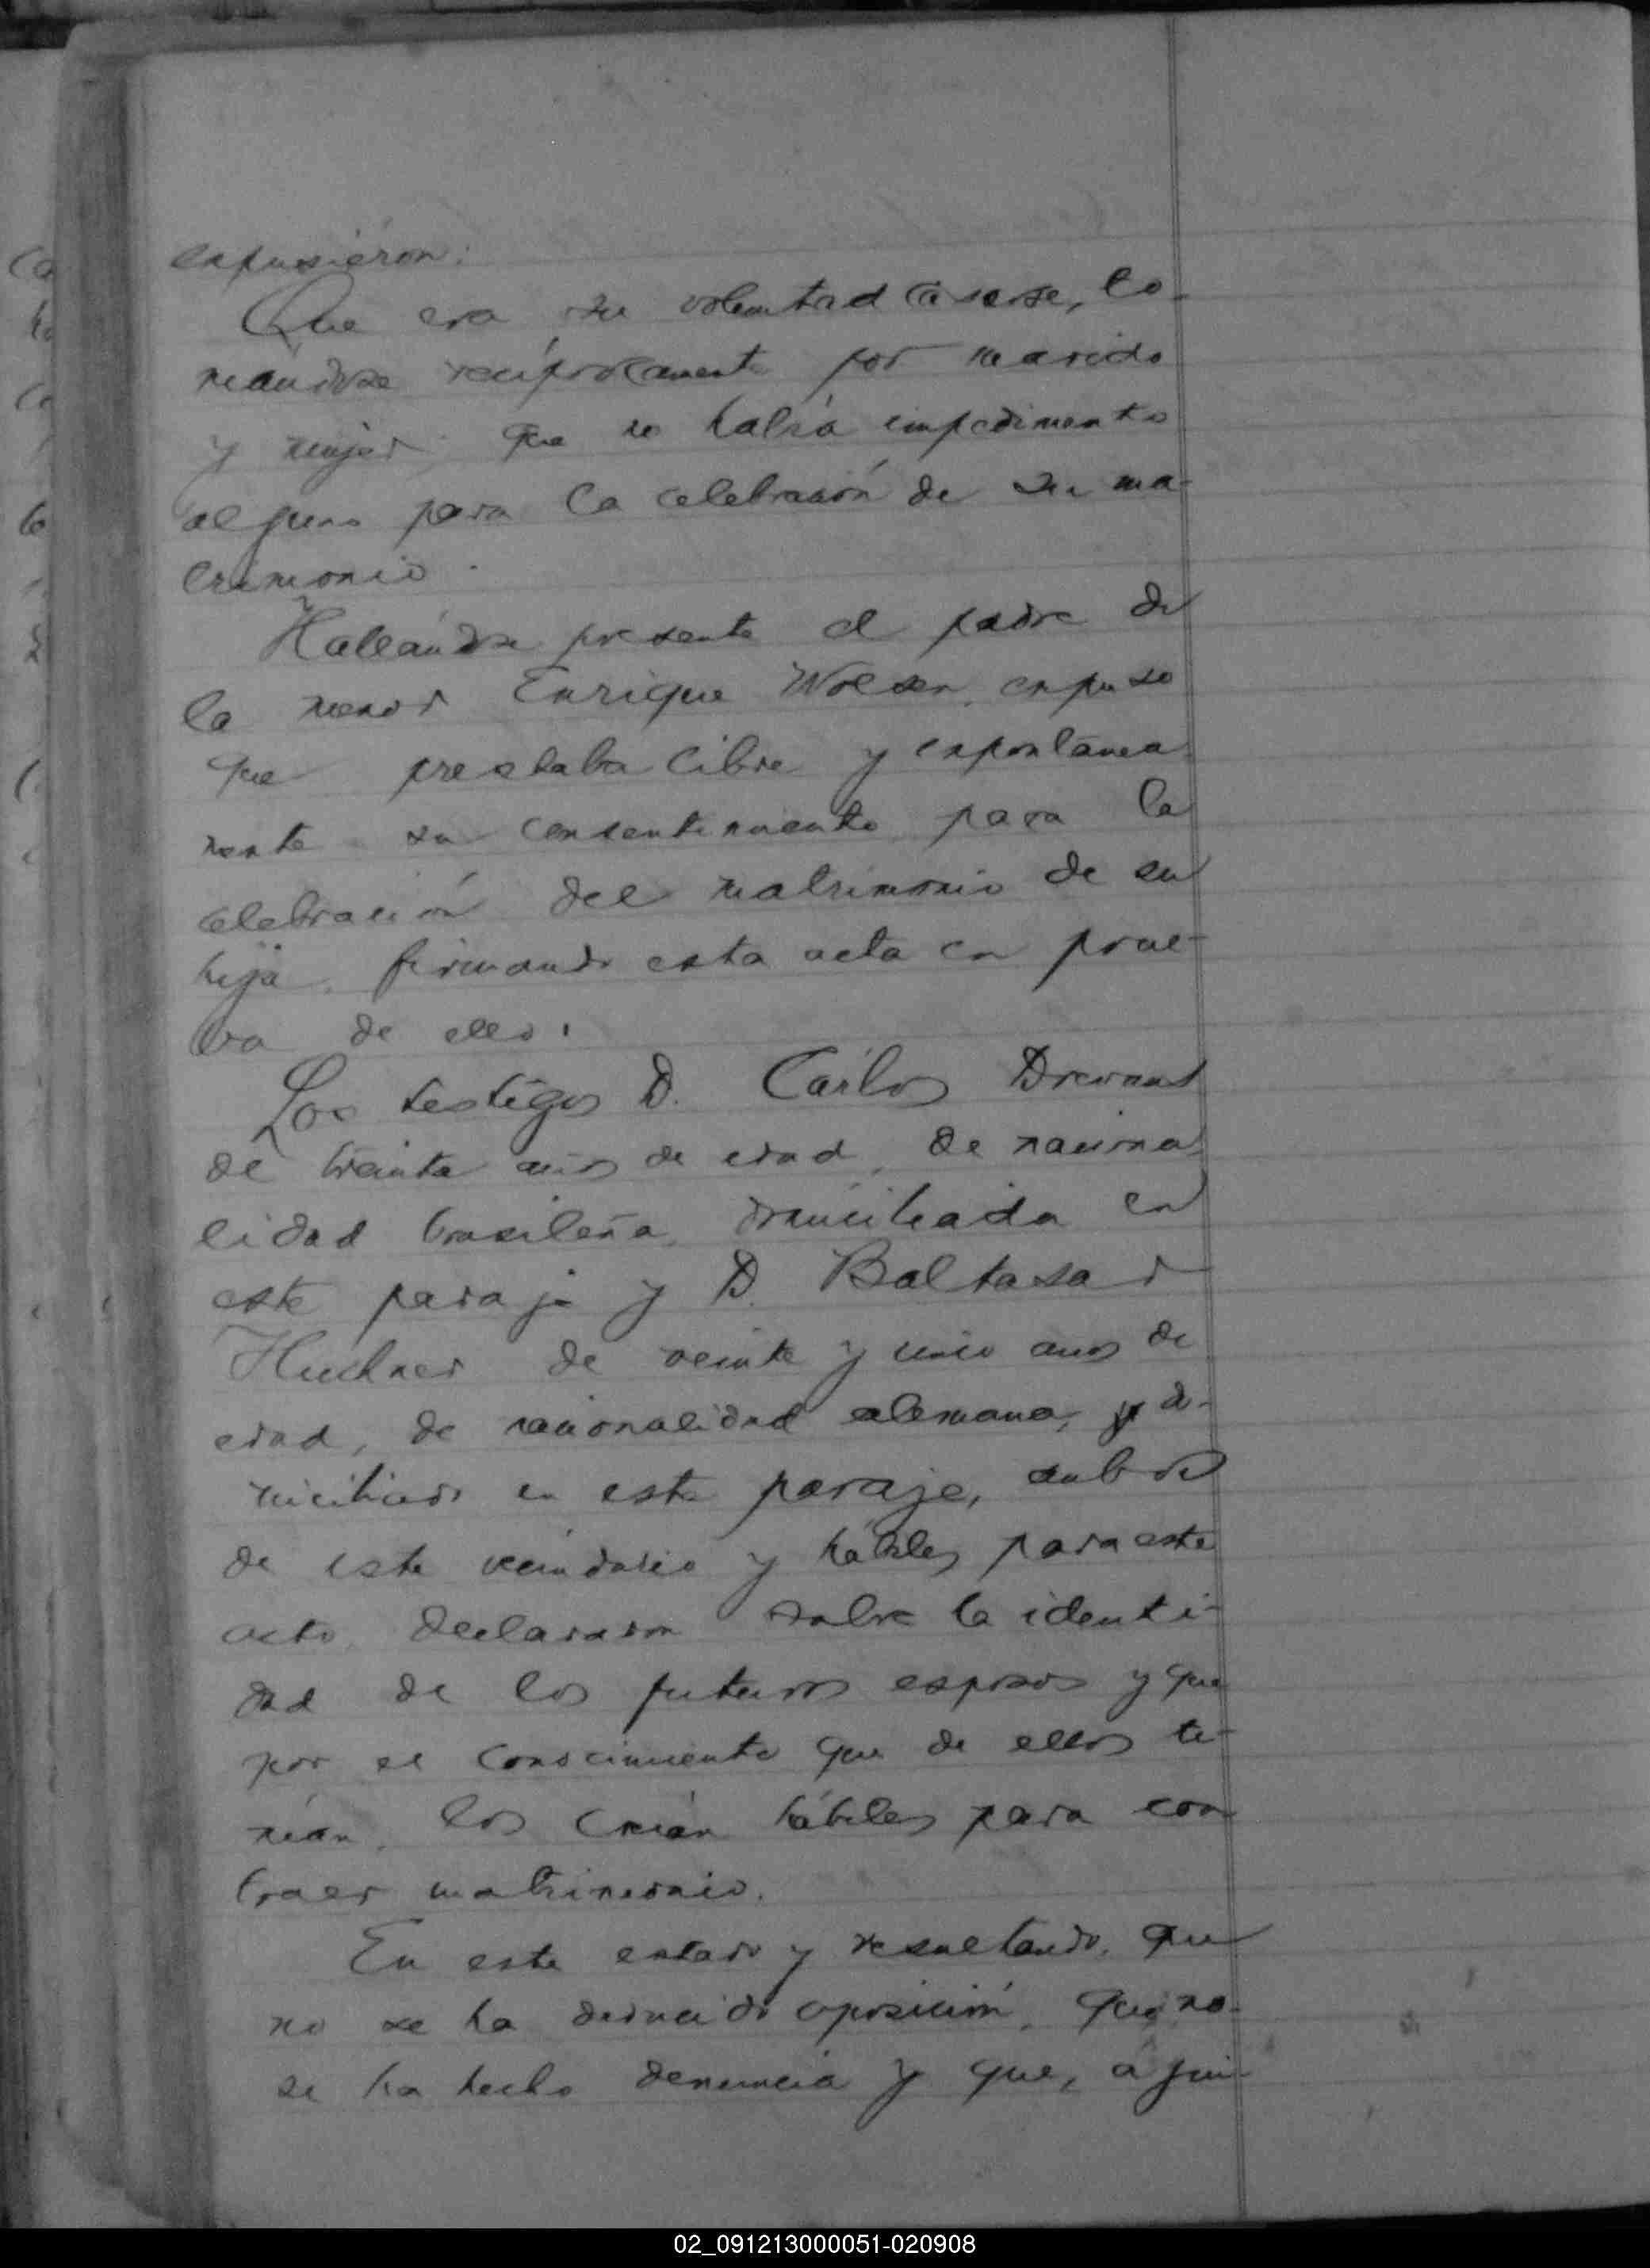 expusieron:
Que era su voluntad casarse, to-
mándose recíprocamente por marido
y mujer que no había impedimento
alguno para la celebración de su ma-
trimonio.
Hallándose presente el padre de
la menor Enrique Wolsen, expuso
que prestaba libre y expontánea
mente su consentimiento para la
celebración del matrimonio de su
hija, firmando esta acta en prue-
va de ello.
Los testigos D. Cárlos
de treinta años de edad, de naciona
lidad brasileña, domiciliada en
este paraje y D. Baltasar
de veinte y años de
edad, de nacionalidad alemana, y do-
miciliado en este paraje, ambos
de este vecindario y hábiles para este
acto, declararon sobre la identi-
dad de los futuros esposos y que
por el conocimiento que de ellos te-
nían, los creían hábiles para con
traer matrimonio.
En este estado y resultando, que
no se ha deducido oposición, que no-
se ha hecho denuncia y que, á jui-
02_091213000051-020908